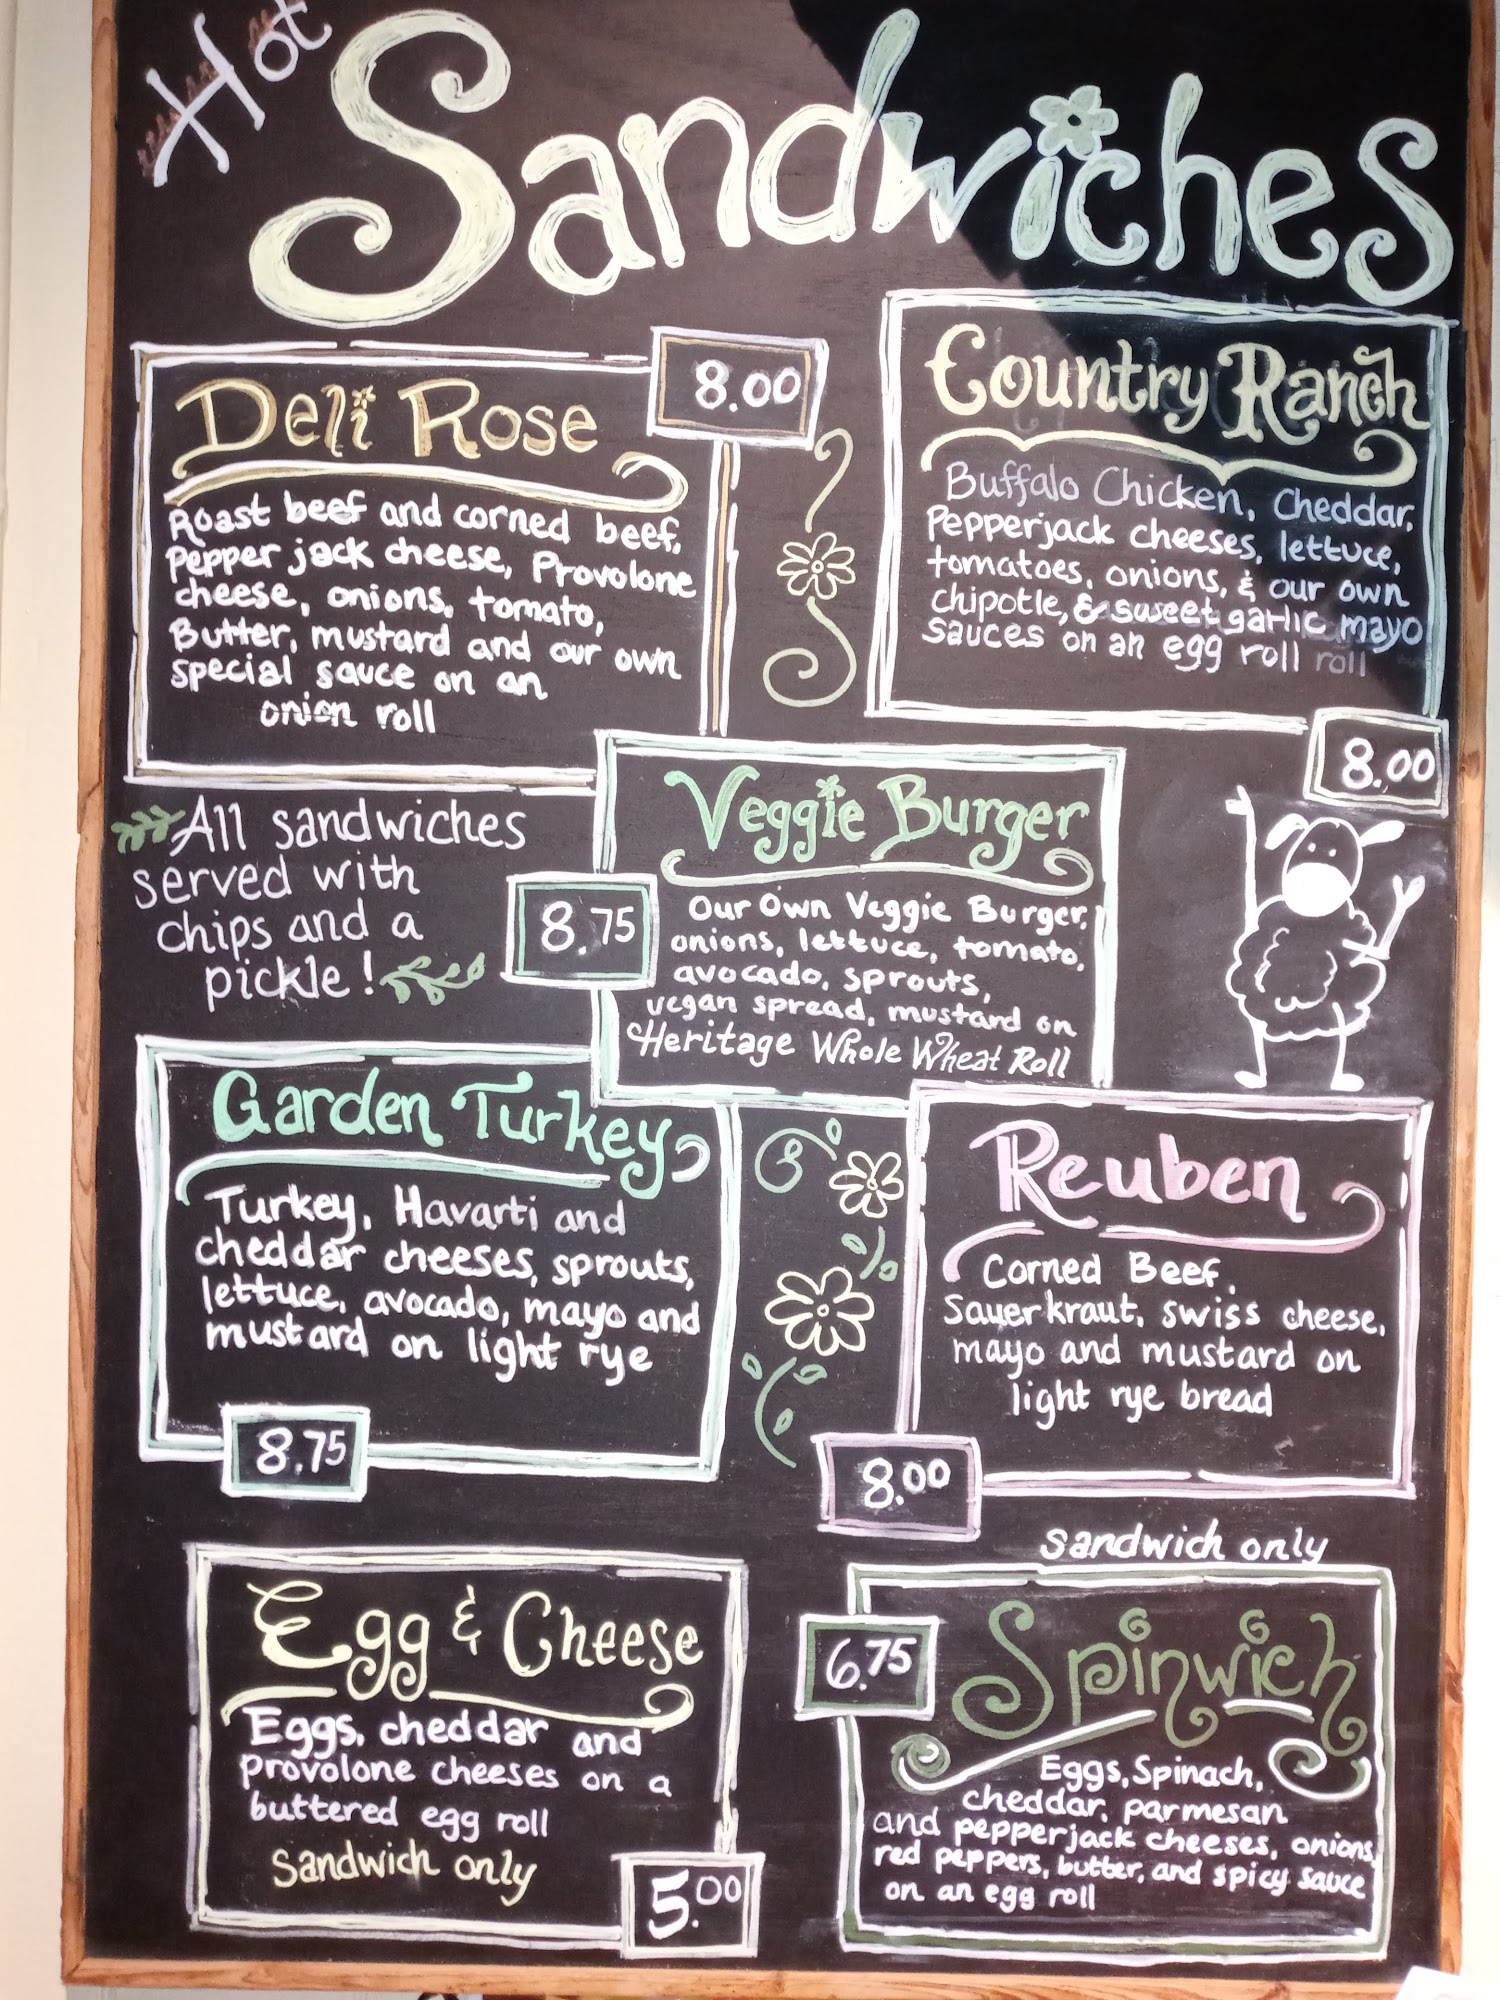 Hot
Sandwiches
Deli Rose
8.00
Roast beef and corned beef,
Pepper jack cheese, Provolone
cheese, onions, tomato,
Butter, mustard and our own
special sauce on an
onion roll
Country Ranch
Buffalo Chicken, Cheddar,
Pepperjack cheeses, lettuce,
tomatoes, onions, & our own
chipotle, & sweet garlic mayo
sauces on an egg roll roll
8.00
All sandwiches
served with
chips and a
pickle!
Veggie Burger
8.75
Our Own Veggie Burger,
onions, lettuce, tomato,
avocado, sprouts,
vegan spread, mustard on
Heritage Whole Wheat Roll
Garden Turkey
Turkey, Havarti and
cheddar cheeses, sprouts,
lettuce, avocado, mayo and
mustard on light rye
8.75
Reuben
Corned Beef,
Sauerkraut, swiss cheese,
mayo and mustard on
light rye bread
8.00
Egg & Cheese
Eggs, cheddar and
Provolone cheeses on a
buttered egg roll
Sandwich only
5.00
sandwich only
Spinwich
6.75
Eggs, Spinach,
cheddar, parmesan
and pepperjack cheeses, onions,
red peppers, butter, and spicy sauce
on an egg roll